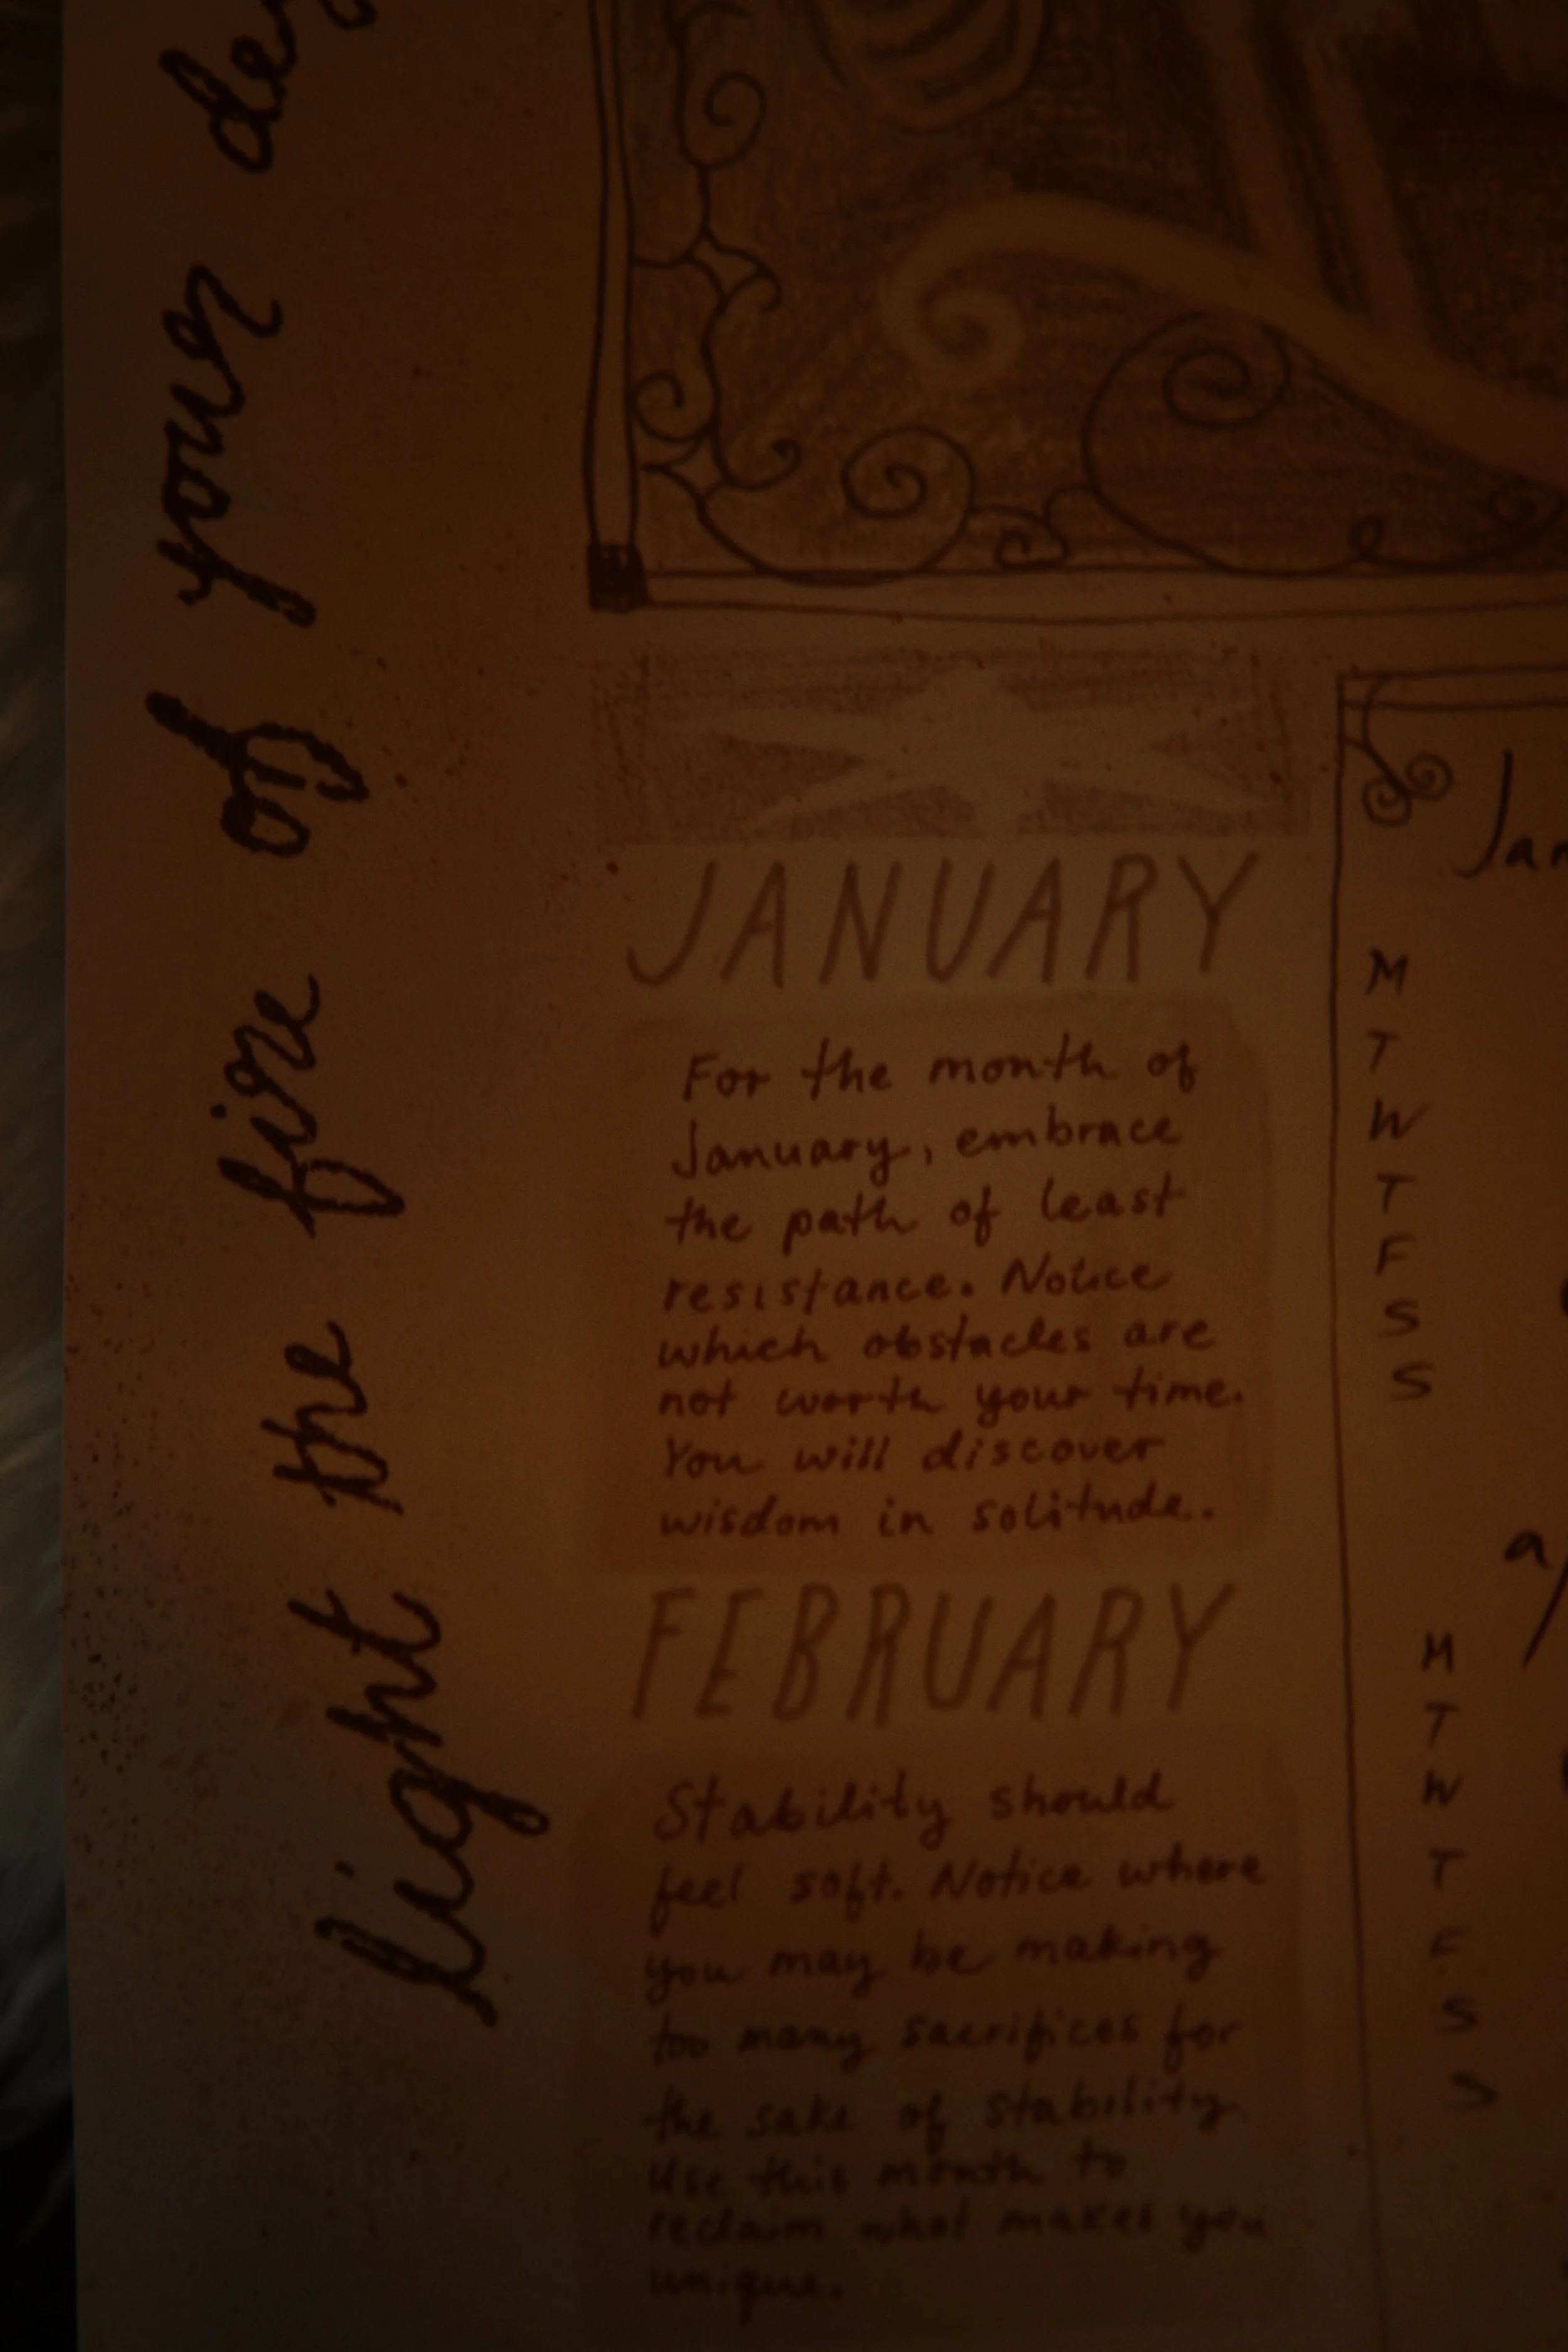 light the fire of your
JANUARY
For the month of
January, embrace
the path of least
resistance. Notice
which obstacles are
not worth your time.
You will discover
wisdom in solitude.
FEBRUARY
Stability should
feel soft. Notice where
you may be making
too many sacrifices for
the sake of stability.
Use this month to
reclaim what makes you
unique.
Jan
M
T
W
T
F
S
S
a/
M
T
W
T
F
S
S